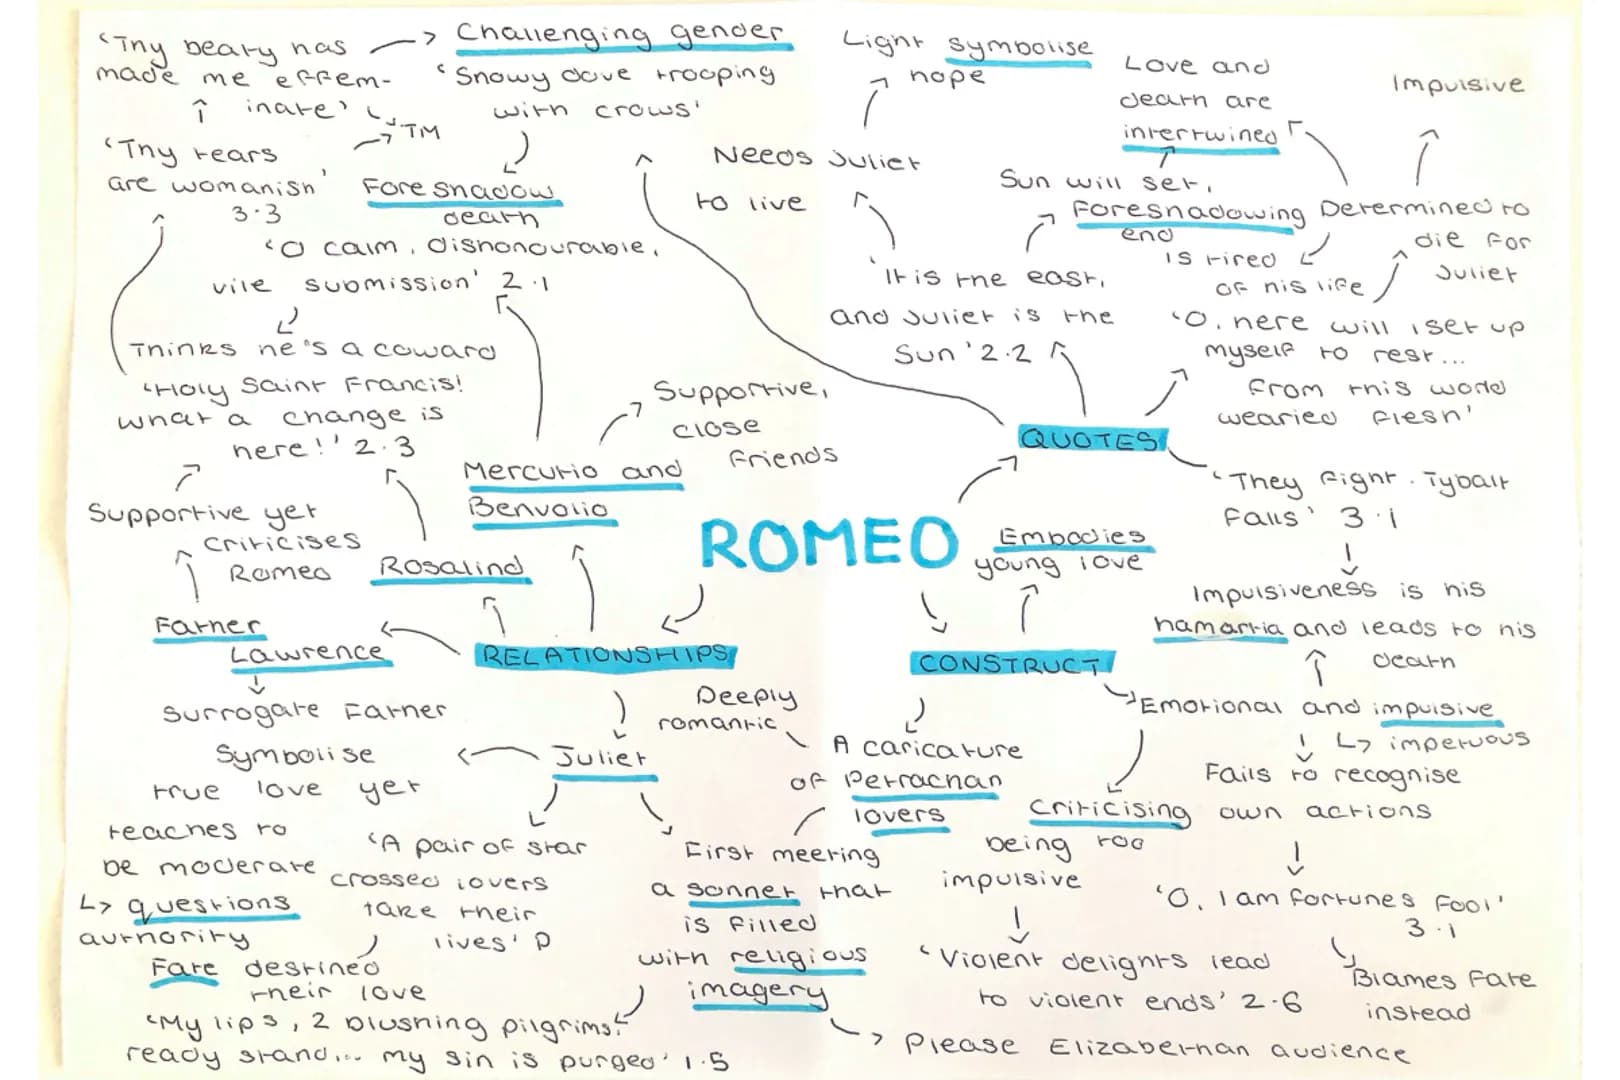 'Thy beaty has
made me effem-
inate'
TM
'Thy tears
are womanish'
3.3
Challenging gender
'Snowy dove trooping
with crows'
Foreshadow
death
'O calm, dishonourable,
vile submission' 2.1
Thinks he's a coward
'Holy Saint Francis!
what a change is
here!' 2.3
Supportive,
close
friends
Mercutio and
Benvolio
Supportive yet
criticises
Romeo
Rosalind
Father
Lawrence
Surrogate Father
RELATIONSHIPS
ROMEO
Light symbolise
hope
Needs Juliet
to live
'It is the east,
and Juliet is the
Sun' 2.2
Love and
death are
intertwined
Impulsive
Sun will set,
Foreshadowing
end
Determined to
die for
Juliet
is tired
of his life
'O, here will I set up
myself to rest...
from this world
wearied flesh'
QUOTES
'They fight. Tybalt
falls' 3.1
Impulsiveness is his
hamartia and leads to his
death
Embodies
young love
CONSTRUCT
Emotional and impulsive
↳ impetuous
Fails to recognise
own actions
'O, I am fortunes fool'
3.1
Blames fate
instead
Criticising
being too
impulsive
'Violent delights lead
to violent ends' 2.6
Deeply
romantic
A caricature
of Petrachan
lovers
Juliet
Symbolise
true love yet
teaches to
be moderate
↳ questions
authority
'A pair of star
crossed lovers
take their
lives' P
Fate destined
their love
First meeting
a sonnet that
is filled
with religious
imagery
'My lips, 2 blushing pilgrims,
ready stand... my sin is purged' 1.5
Please Elizabethan audience